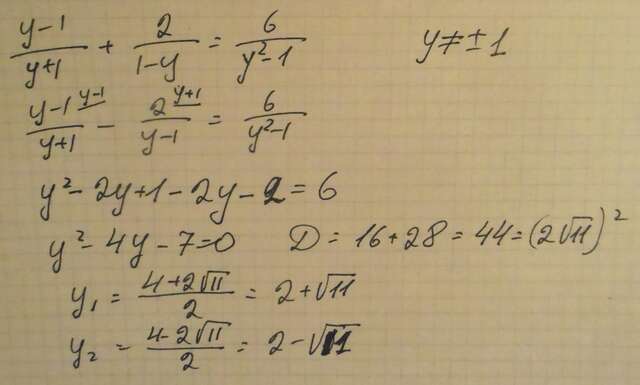 (y-1)/(y+1) + 2/(1-y) = 6/(y²-1)   y≠±1
(y-1)/(y+1) ^(y-1) - 2/(y-1) ^(y+1) = 6/(y²-1)
y²-2y+1-2y-2=6
y²-4y-7=0   D=16+28=44=(2√11)²
y₁ = (4+2√11)/2 = 2+√11
y₂ = (4-2√11)/2 = 2-√11